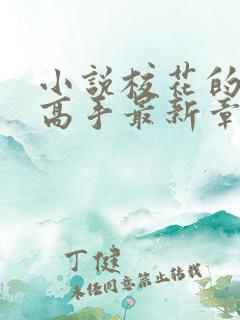 小說校花的
高手最新章
丁健
未经同意禁止转载